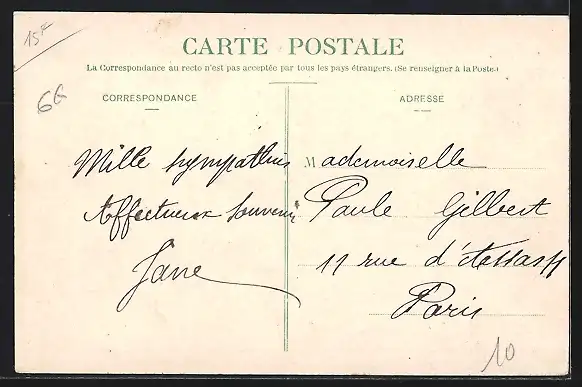 15F
6G
CARTE POSTALE
La Correspondance au recto n'est pas acceptée par tous les pays étrangers. (Se renseigner à la Poste.)
CORRESPONDANCE
Mille sympathies
Affectueux souvenir
Jane
ADRESSE
Mademoiselle
Paule Gilbert
11 rue d'Assas
Paris
10